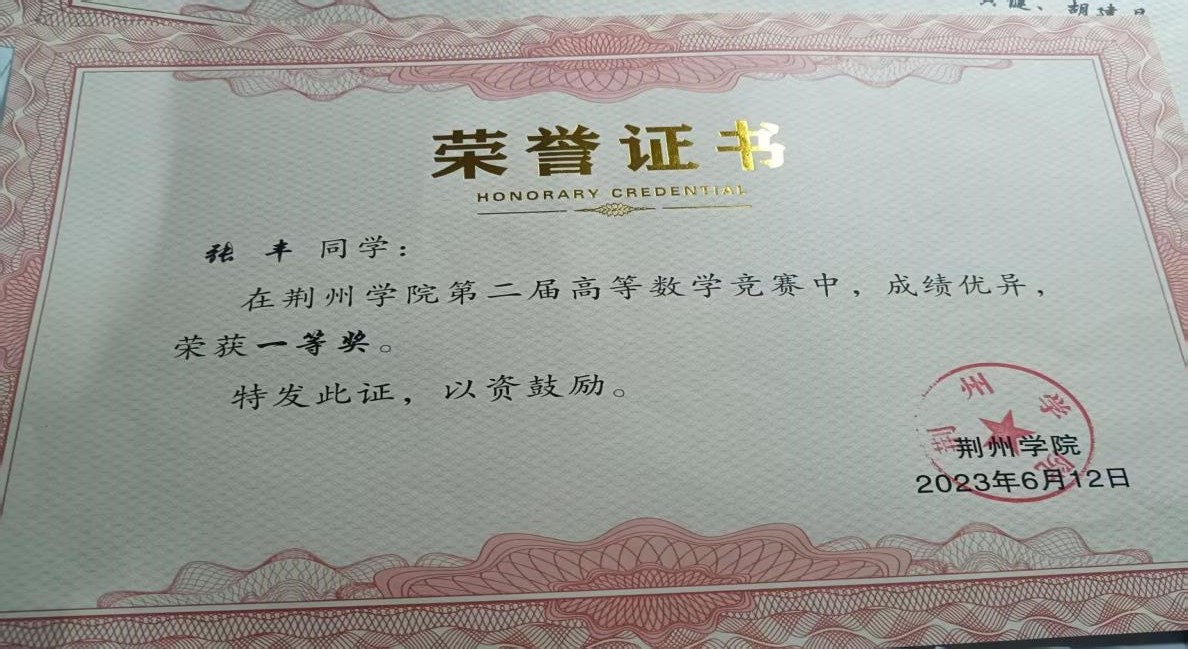 胡建
荣誉证书
HONORARY CREDENTIAL
张 丰 同学：
在荆州学院第二届高等数学竞赛中，成绩优异，
荣获一等奖。
特发此证，以资鼓励。
荆州学院
荆州学院
2023年6月12日